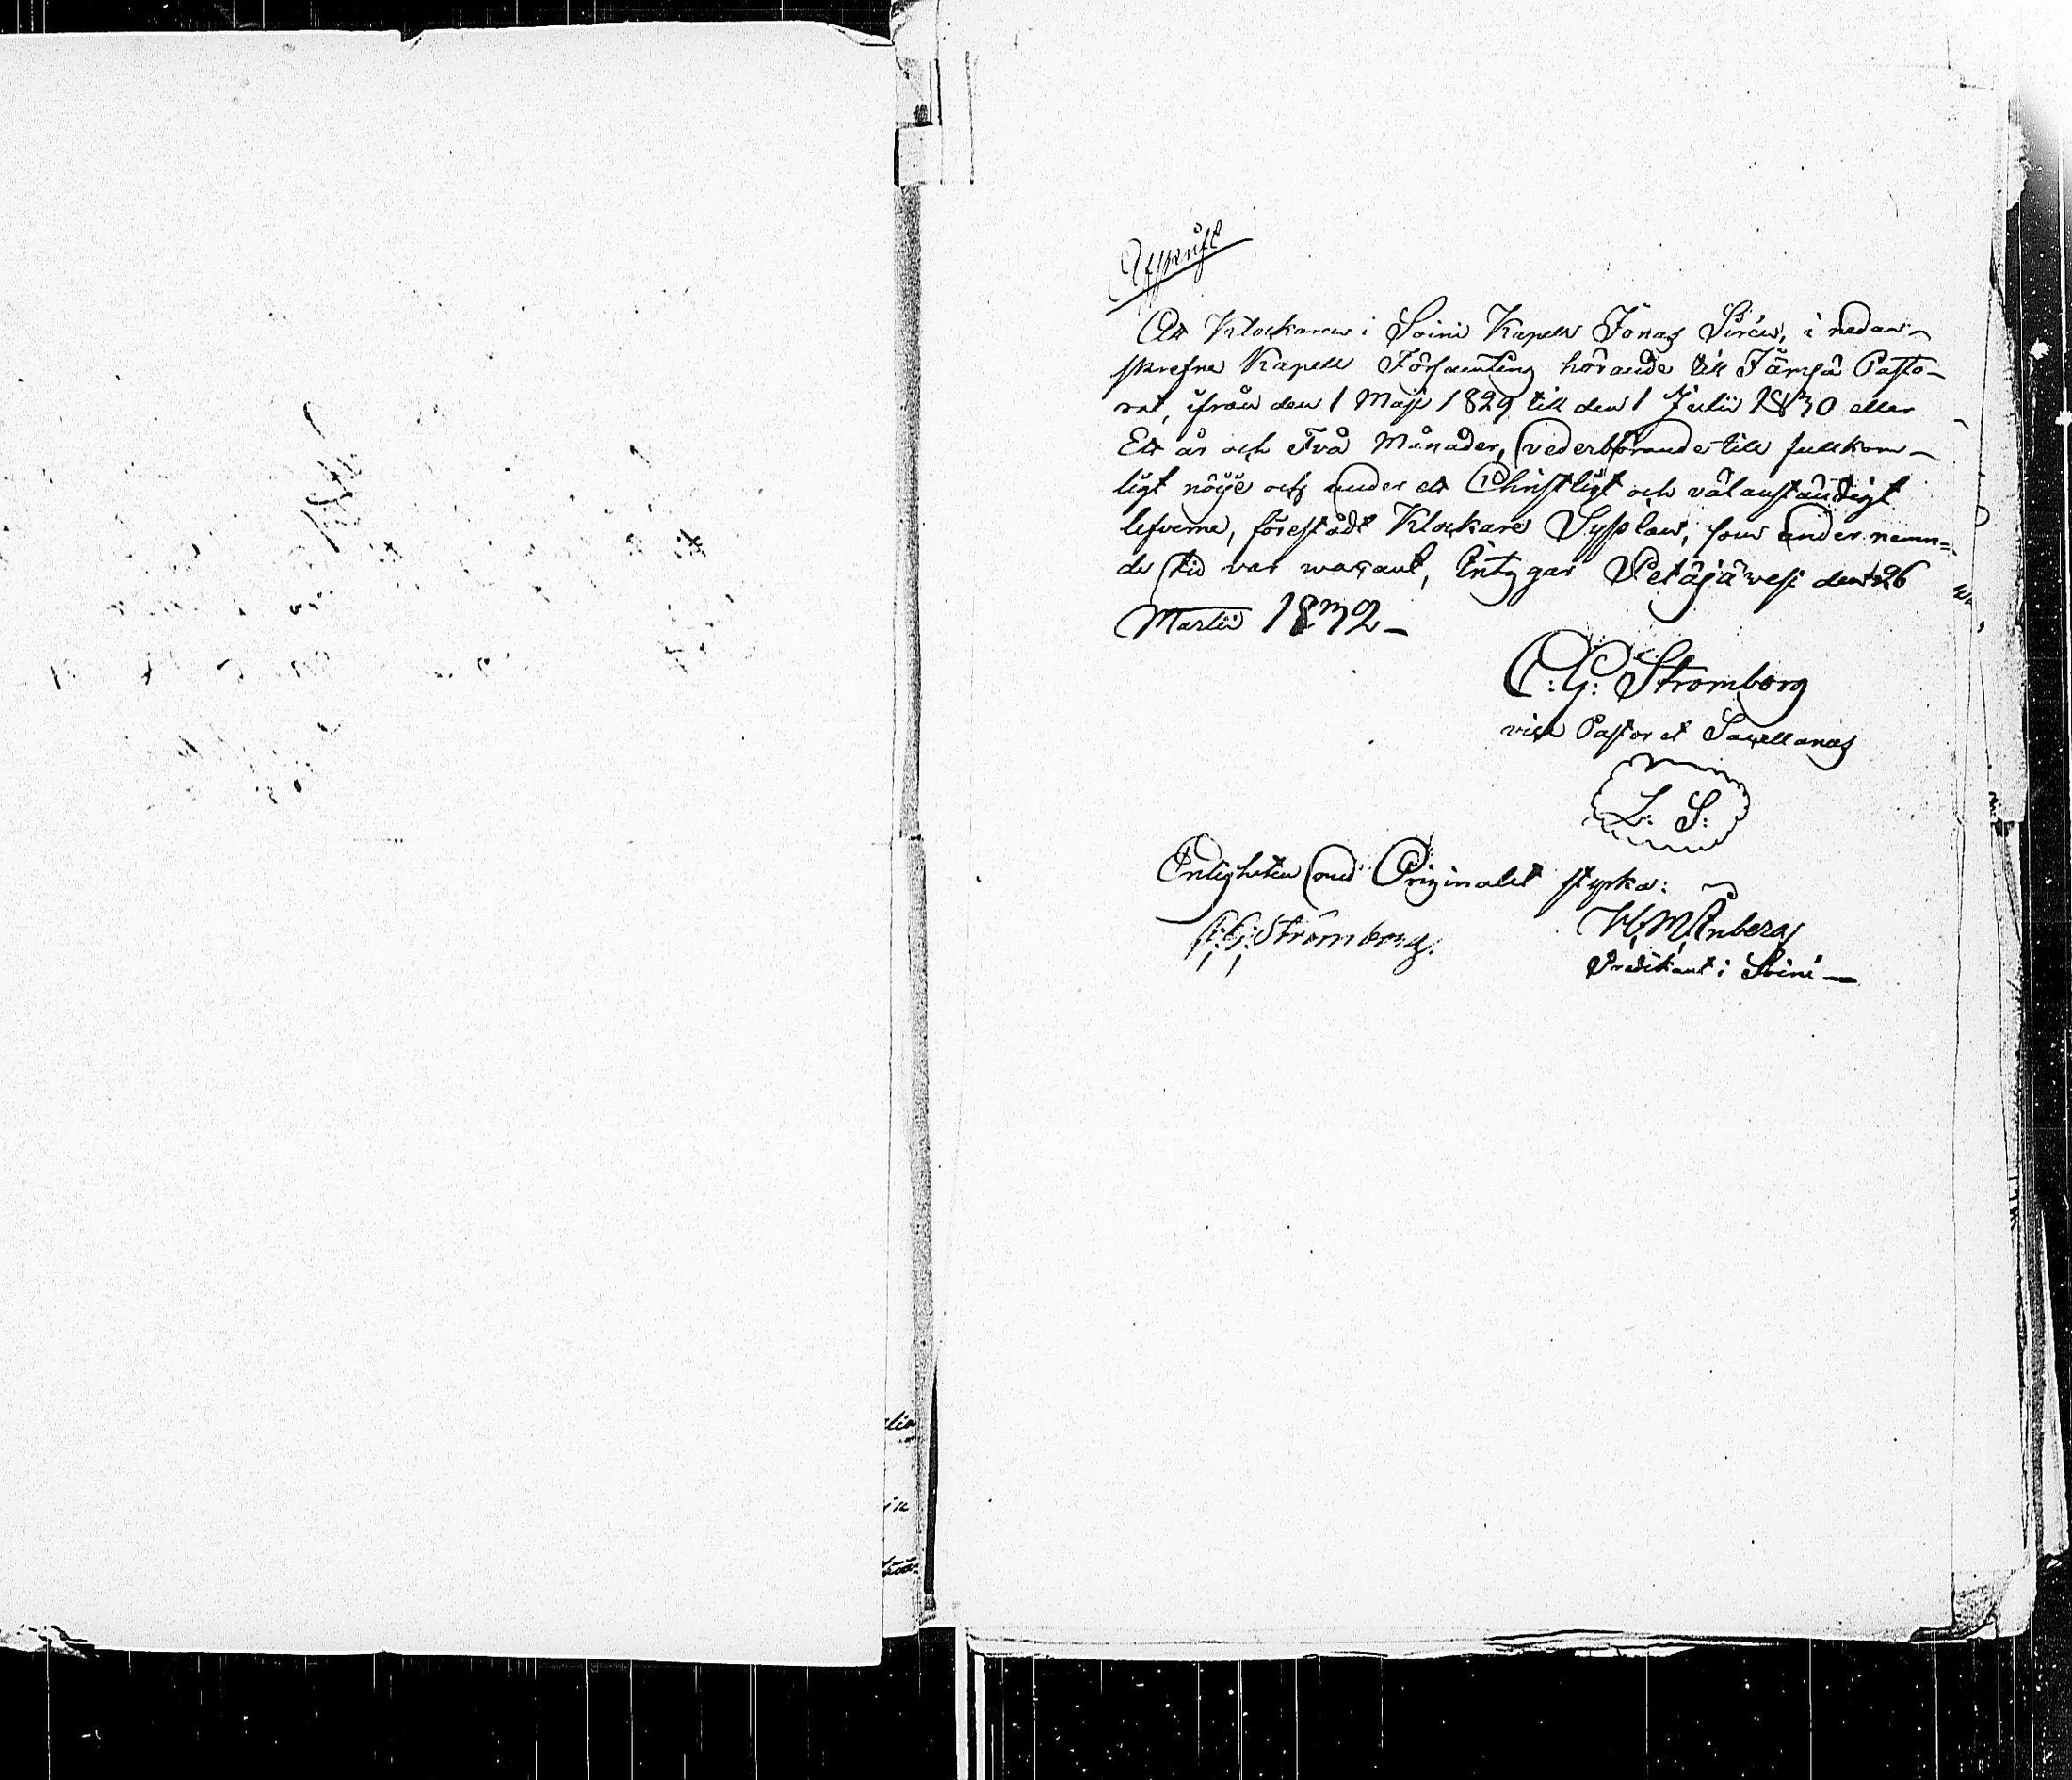 Afskrift
Att Klockaren i Soini Kapell Jonas Sirén, i nedan-
skrefne Kapell Församling hörande till Jämsä Pasto-
rat, ifrån den 1 Maji 1829 till den 1 Julii 1830 eller
Ett år och Två Månader, vederbörande till fullkom-
ligt nöije och under ett Christligt och välanständigt
lefverne, förestådt Klockare Sysslan, som under nemn=
de tid var wacant, Intygar Petäjävesi den 26
Martii 1832-
C: G: Stromborg
vice Pastor et Sacellanus
L: S:
Enligheten med Originalet styrka:
C: G: Strömborg.
Predikant i Soini